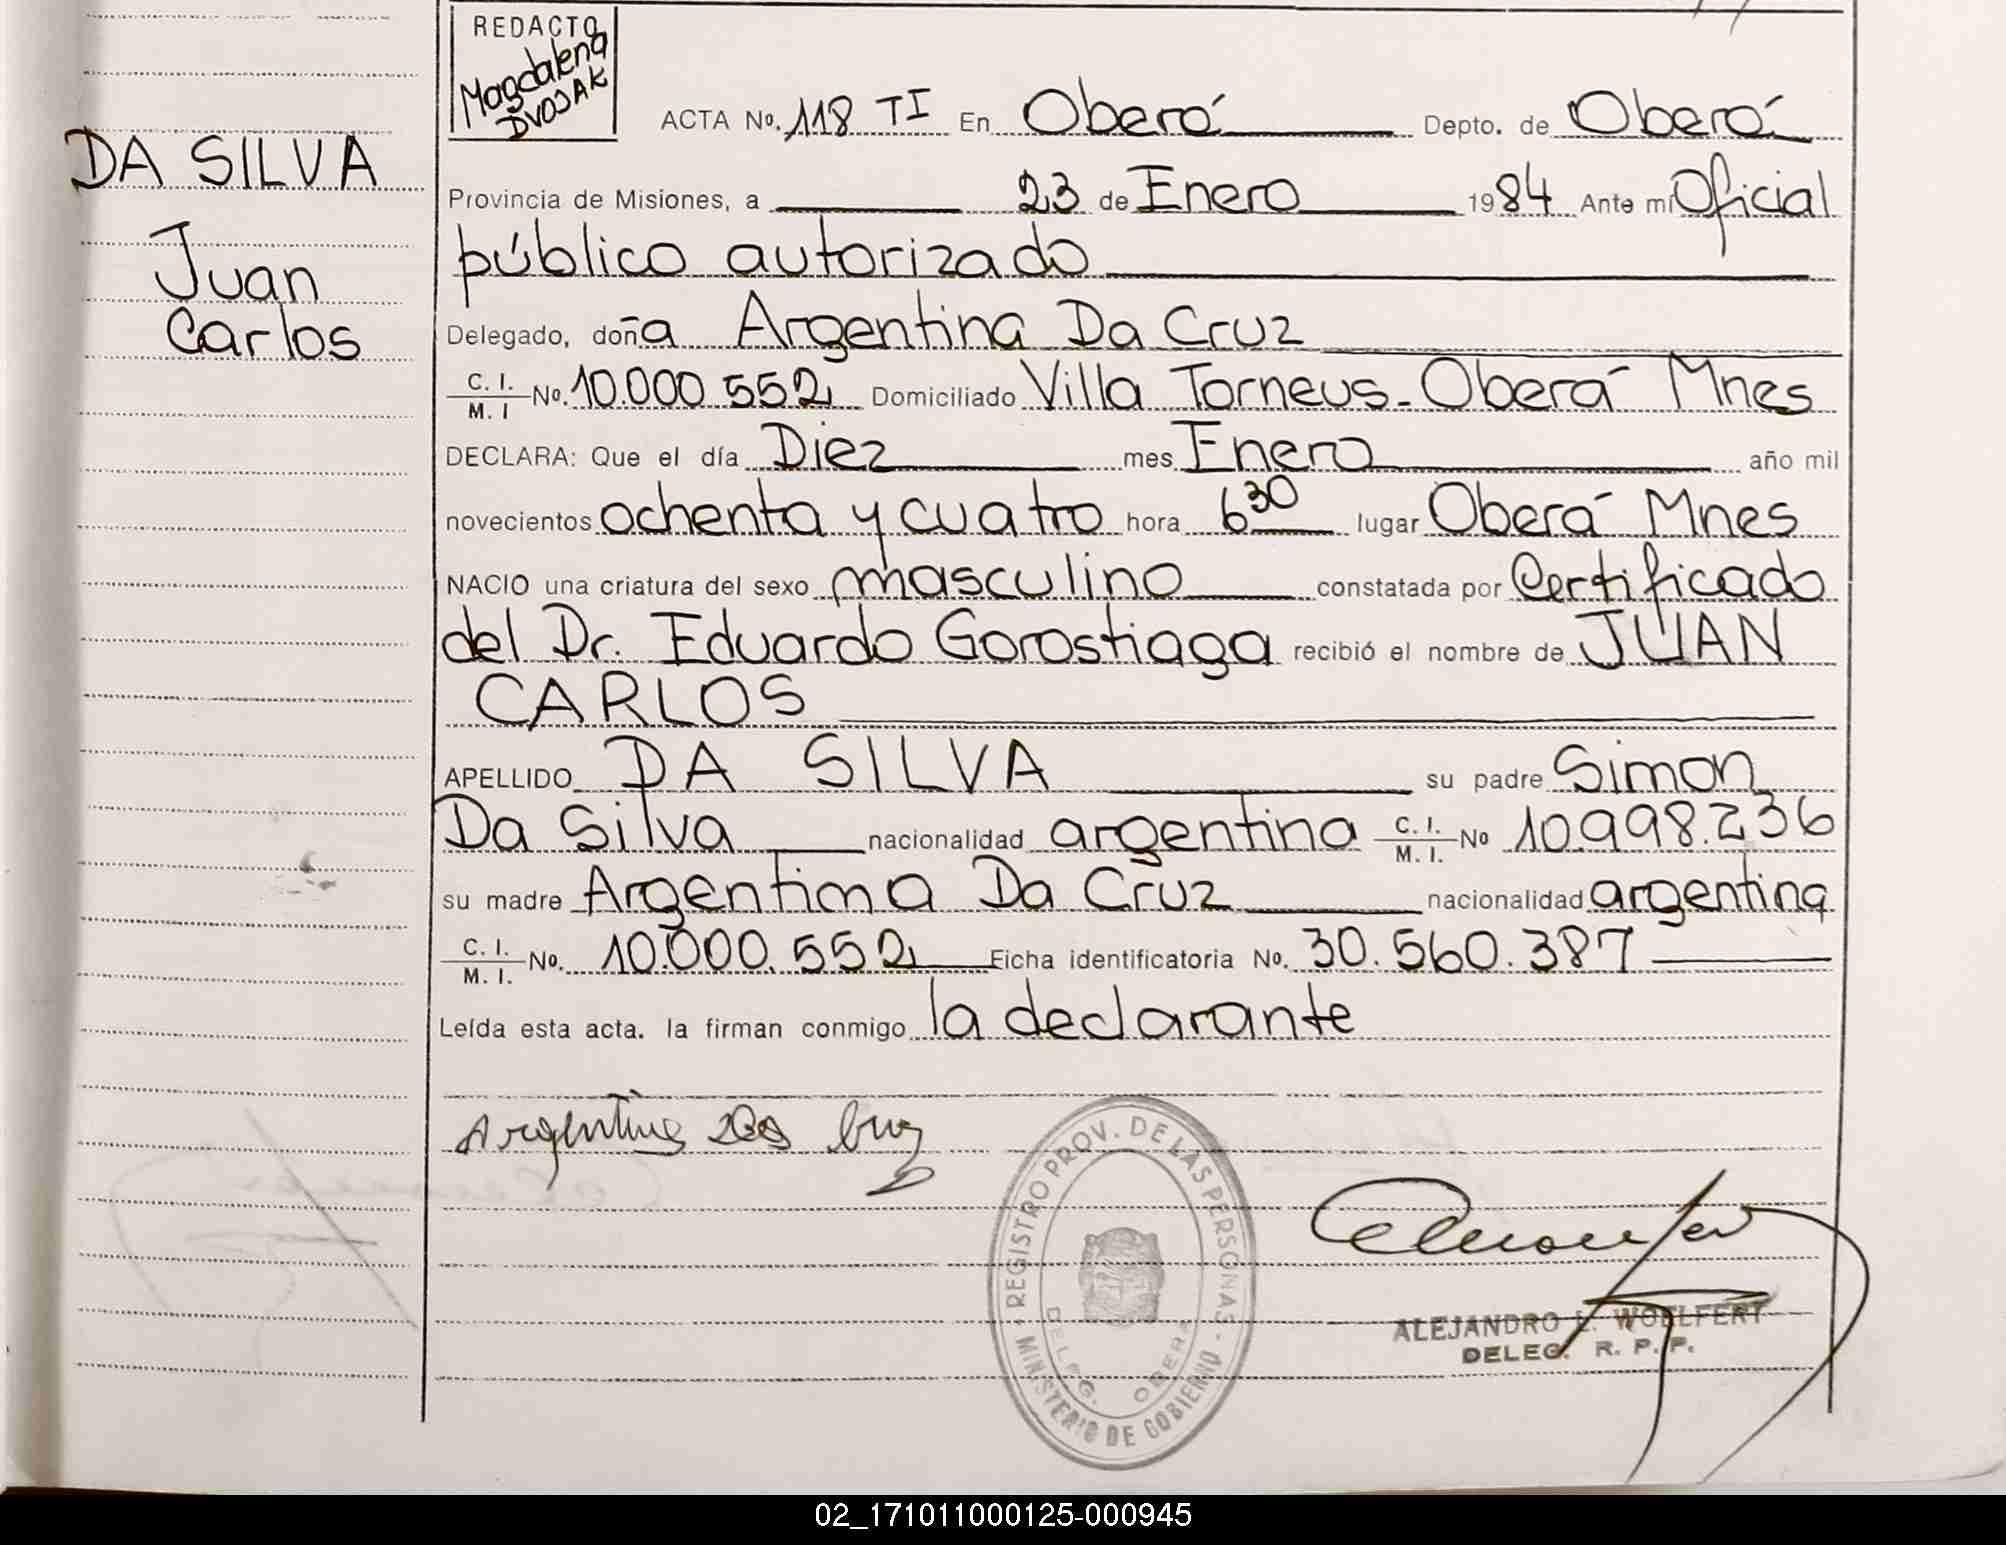 REDACTO
Magdalena
DVOJAK
ACTA No. 118 TI En Oberá Depto. de Oberá
DA SILVA
Provincia de Misiones, a 23 de Enero 1984 Ante mí Oficial
Juan
público autorizado
Carlos
Delegado, doña Argentina Da Cruz
C. I. / M. I No. 10.000.552 Domiciliado Villa Torneus - Oberá Mnes
DECLARA: Que el día Diez mes Enero año mil
novecientos ochenta y cuatro hora 6 30 lugar Oberá Mnes
NACIO una criatura del sexo masculino constatada por Certificado
del Dr. Eduardo Gorostiaga recibió el nombre de JUAN
CARLOS
APELLIDO DA SILVA su padre Simon
Da Silva nacionalidad argentina C. I. / M. I. No 10.998.236
su madre Argentina Da Cruz nacionalidad argentina
C. I. / M. I. No. 10.000.552 Ficha identificatoria No. 30.560.387
Leída esta acta. la firman conmigo la declarante
Argentina Da Cruz
REGISTRO PROV. DE LAS PERSONAS - MINISTERIO DE GOBIERNO
DELEG. OBERA
ALEJANDRO L. WOELFERT
DELEG. R. P. P.
02_171011000125-000945